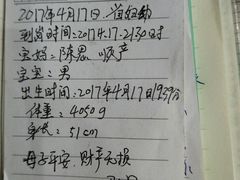 2017年4月17日.首妇幼
到院时间:2017.4.17-21:30时
宝妈:陈思 顺产
宝宝:男
出生时间:2017年4月17日19:39分
体重:4050g
身长:51cm
母子平安.财产无损